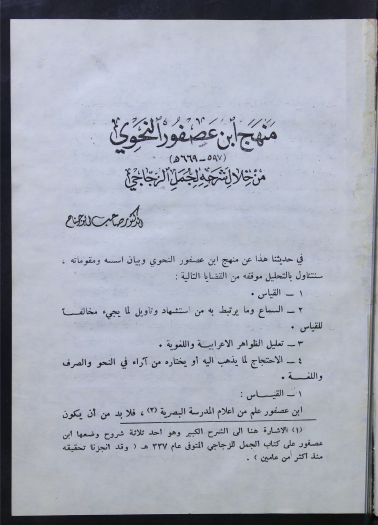 منهج ابن عصفور النحوي
(٥٩٧ – ٦٦٩ هـ)
من خلال شرحه لجمل الزجاجي
الدكتور صاحب ابو جناح
في حديثنا هذا عن منهج ابن عصفور النحوي وبيان اسسه ومقوماته ،
سنتناول بالتحليل موقفه من القضايا التالية :
١ – القياس .
٢ – السماع وما يرتبط به من استشهاد وتأويل لما يجيء مخالفاً
للقياس .
٣ – تعليل الظواهر الاعرابية واللغوية .
٤ – الاحتجاج لما يذهب اليه أو يختاره من آراء في النحو والصرف
واللغة .
١ – القياس :
ابن عصفور علم من اعلام المدرسة البصرية (٢) ، فلا بد من أن يكون
(١) الاشارة هنا الى الشرح الكبير وهو أحد ثلاثة شروح وضعها ابن
عصفور على كتاب الجمل للزجاجي المتوفى عام ٣٣٧ هـ ( وقد انجزنا تحقيقه
منذ اكثر من عامين ) .